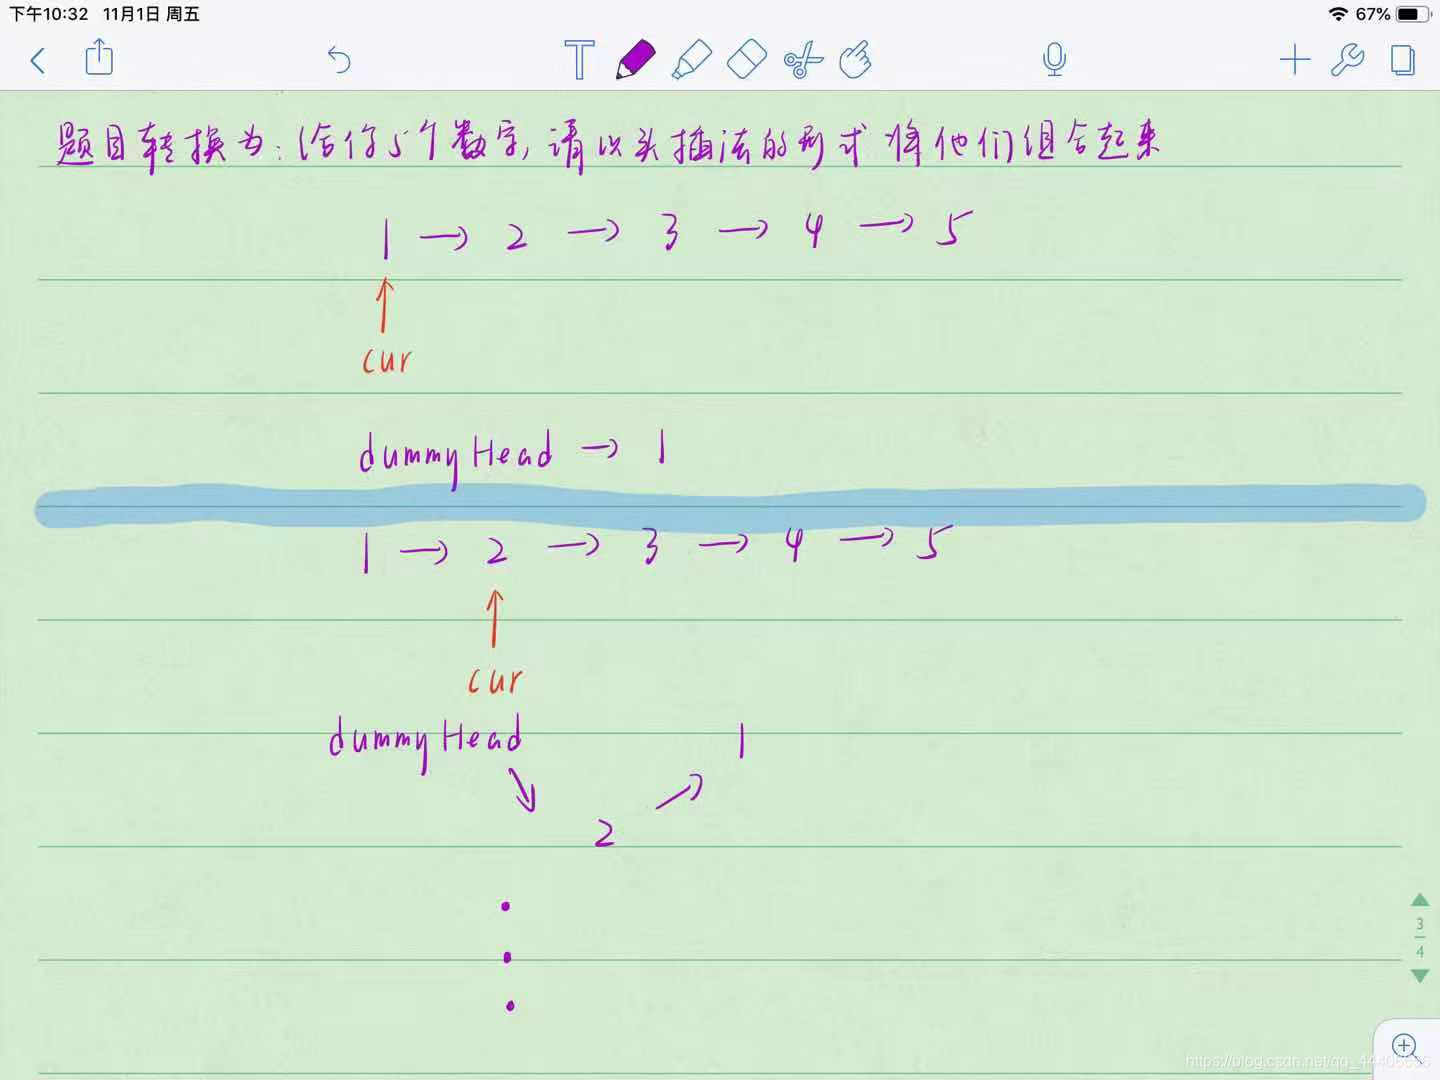 下午10:32 11月1日 周五 67%
T
题目转换为:给你5个数字,请以头插法的形式将他们组合起来
1 → 2 → 3 → 4 → 5
cur
dummyHead → 1
1 → 2 → 3 → 4 → 5
cur
dummyHead 1
2
3
4